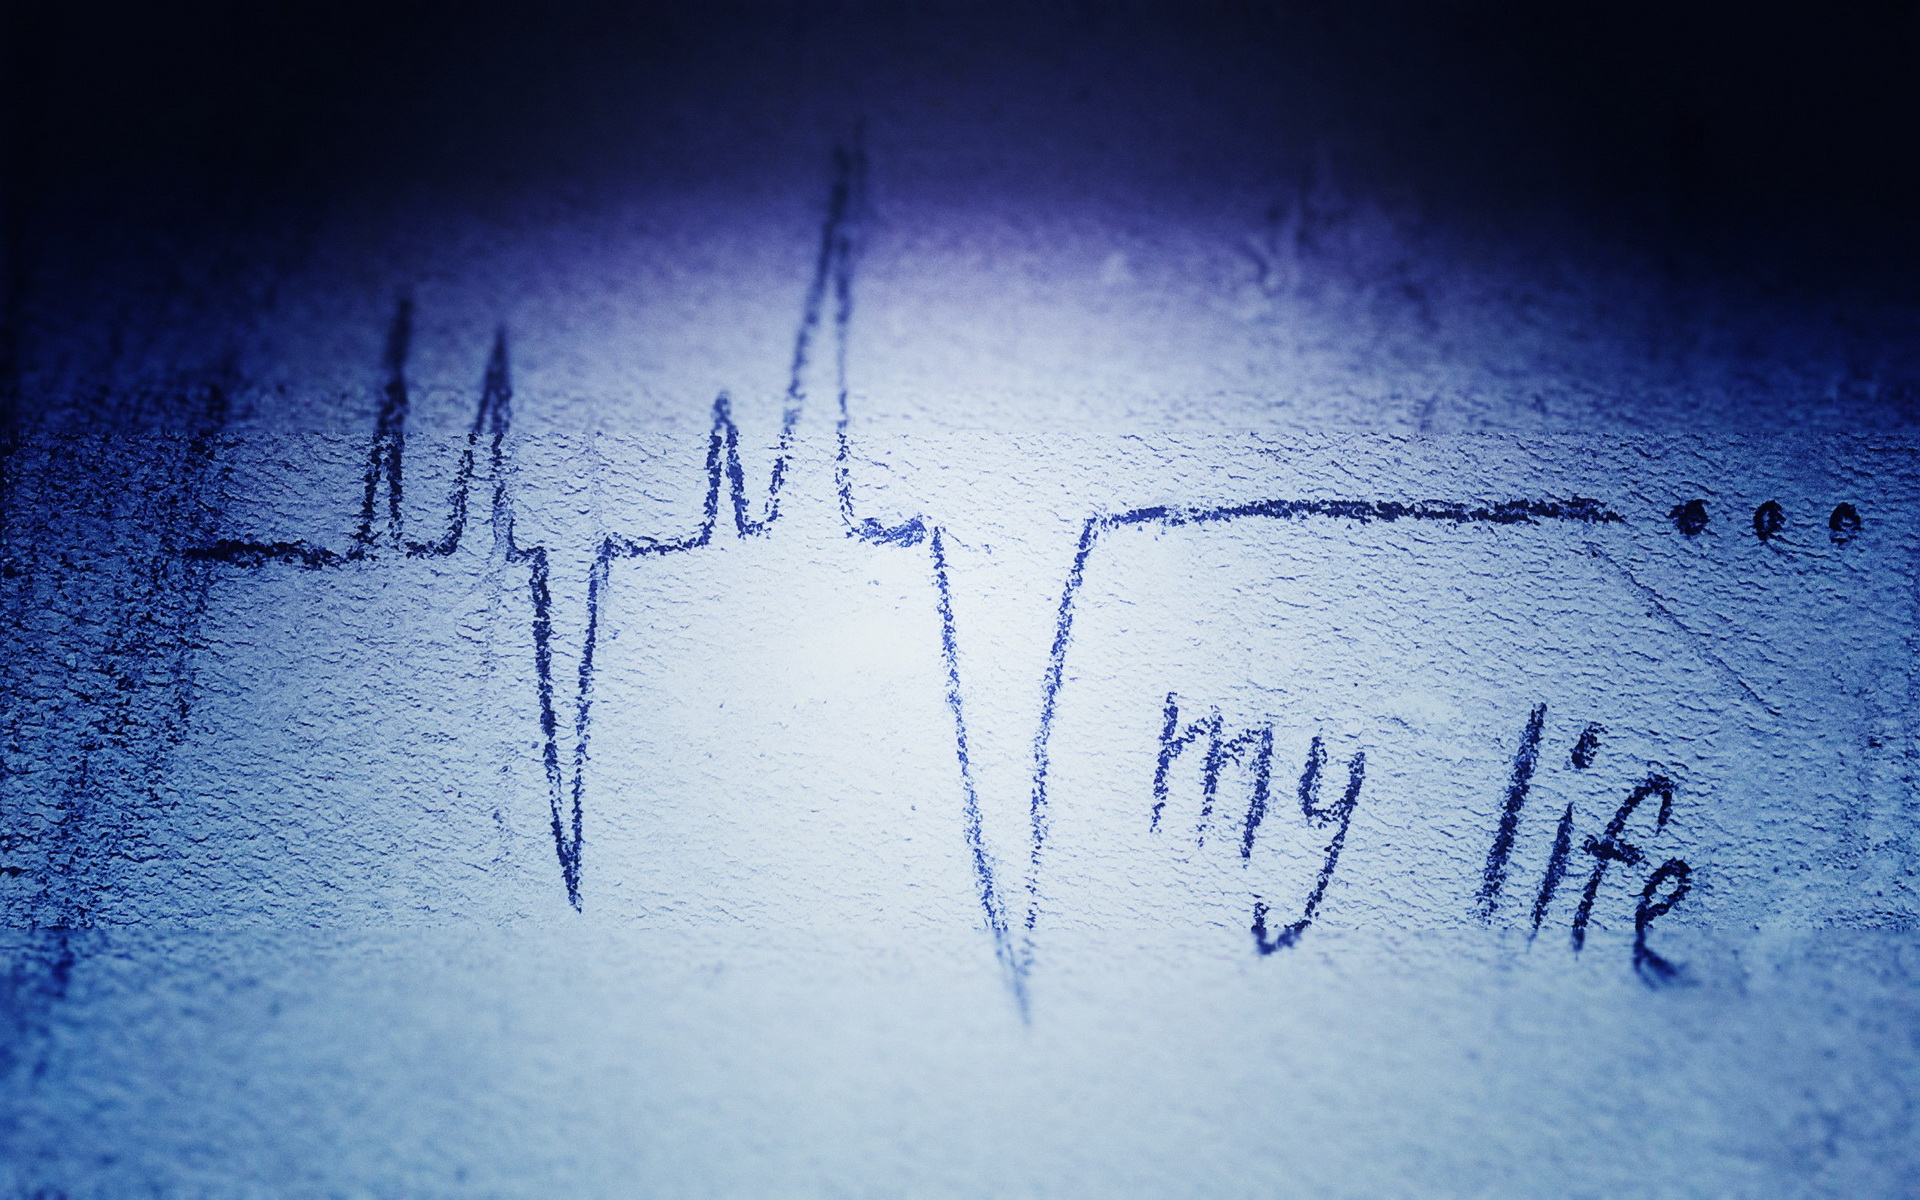 ...
my life